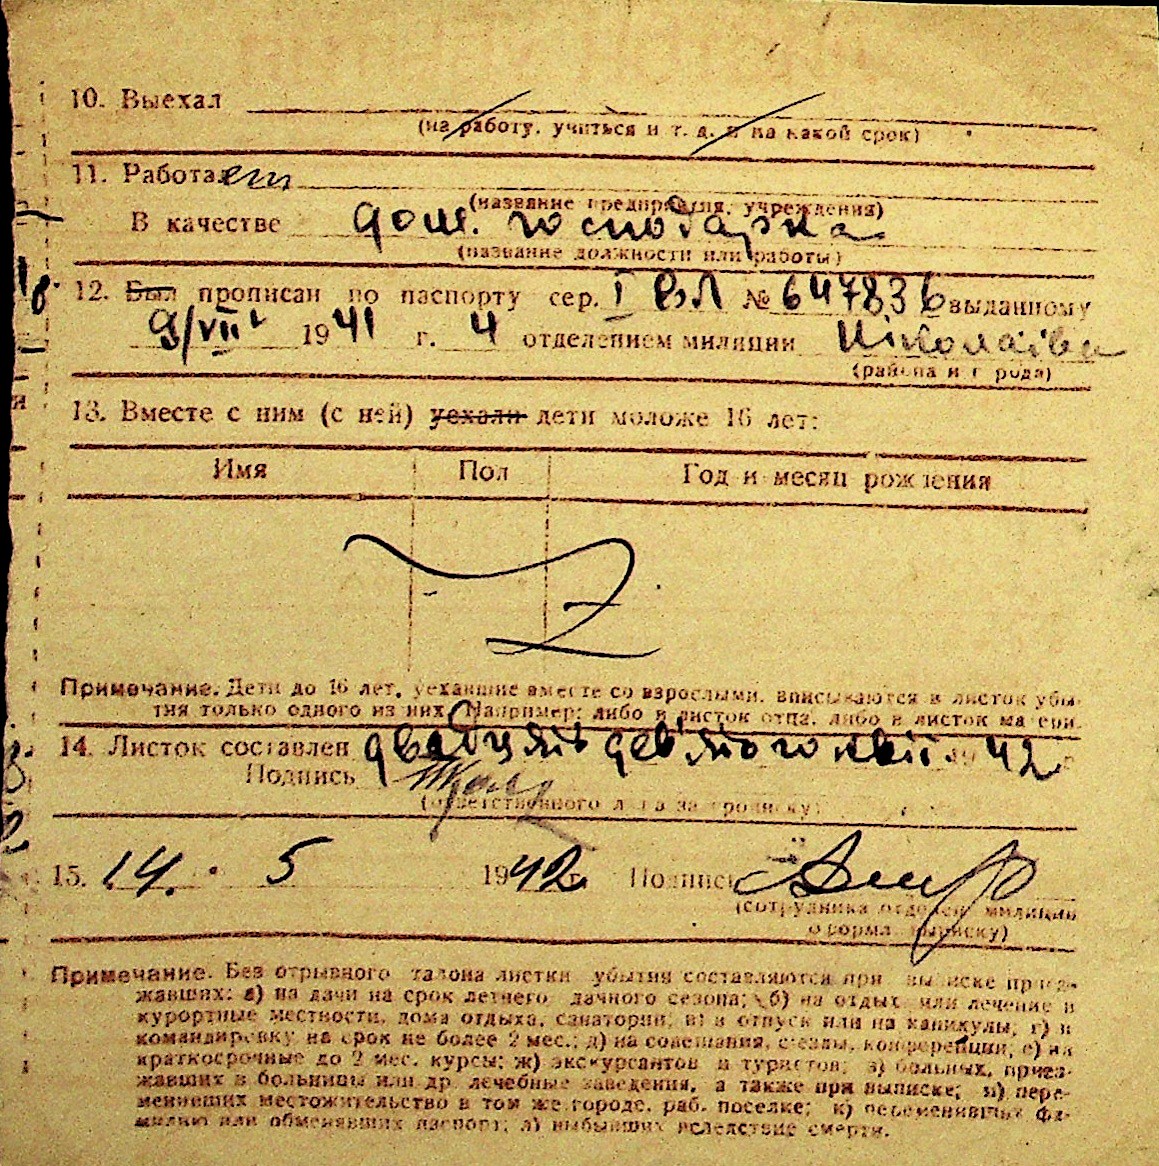 10. Выехал
(на работу, учиться и т. д. и на какой срок)
11. Работает
(название предприятия, учреждения)
В качестве дом. господарка
(название должности или работы)
12. Был прописан по паспорту сер. I ВЛ № 647836 выданному
9/VII 1941 г. 4 отделением милиции Ніколаіва
(района и города)
13. Вместе с ним (с ней) уехали дети моложе 16 лет:
Имя Пол Год и месяц рождения
Z
Примечание. Дети до 16 лет, уехавшие вместе со взрослыми, вписываются в листок убы-
тия только одного из них. Например: либо в листок отца, либо в листок матери.
14. Листок составлен двадцять дев'ятого квіт. 1942 г.
Подпись
(ответственного лица за прописку)
15. 14. 5 1942 г. Подпись
(сотрудника отделен. милиции
оформл. выписку)
Примечание. Без отрывного талона листки убытия составляются при выписке приез-
жавших: а) на дачи на срок летнего дачного сезона; б) на отдых или лечение в
курортные местности, дома отдыха, санатории; в) в отпуск или на каникулы; г) в
командировку на срок не более 2 мес.; д) на совещания, съезды, конференции; е) на
краткосрочные до 2 мес. курсы; ж) экскурсантов и туристов; з) больных, приез-
жавших в больницы или др. лечебные заведения, а также при выписке; и) пере-
менивших местожительство в том же городе, раб. поселке; к) переменивших фа-
милию или обменявших паспорт; л) выбывших вследствие смерти.